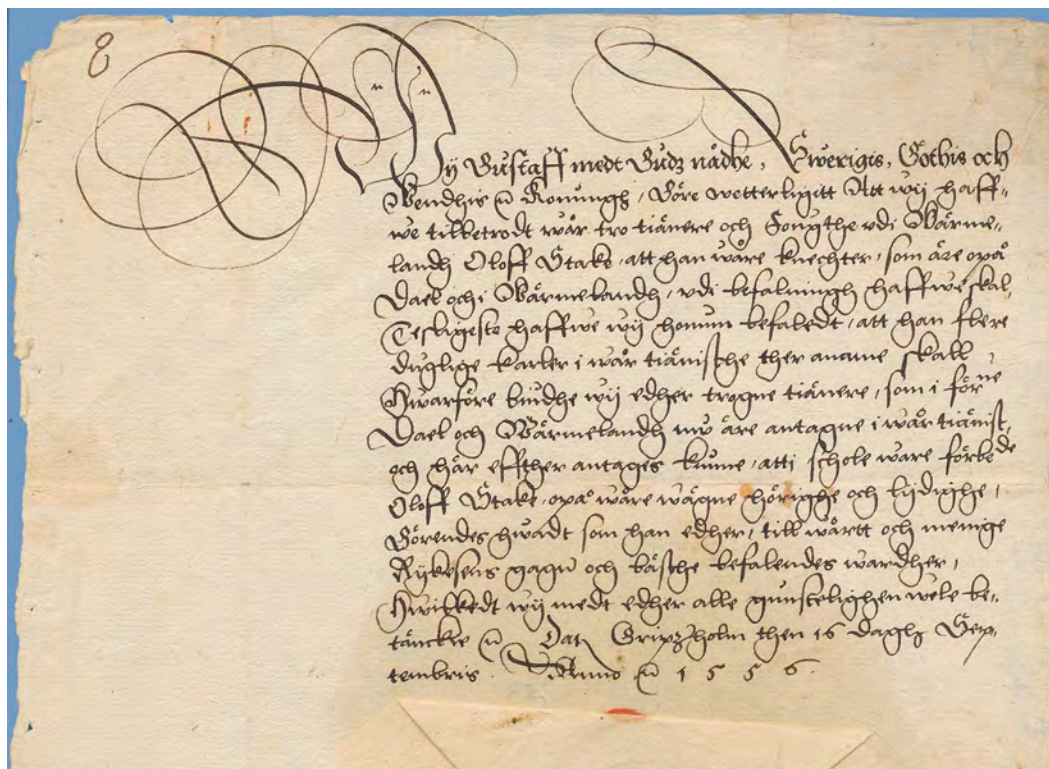 8
Wij Gustaff medt Gudz nådhe, Swerigis, Göthis och
Wendhis etc Konungh, Göre wetterligitt Att wij haff-
we tilbetrodt wår tro tiänere och Fougthe udi Wärme-
landh Oloff Stake, att han wåre knechter, som äre opå
Dael och i Wärmelandh, udi befalningh haffwe skal,
Tesligeste haffwe wij honum befaledt, att han flere
duglige karler i wår tiänische ther aname skall,
Hwarföre biudhe wij edher trogne tiänere, som i förne
Dael och Wärmelandh nw äre antagne i wår tiänist,
och här effther antages kunne, atti schole ware förbede
Oloff Stake, opå wåre wägne hörighe och lydighe,
Görendes hwadt som han edher, till wårtt och menige
Rijkesens gagn och bäsche befalendes wardher,
Hwilkedt wij medt edher alle gunstelighen wele be-
tänckie etc Datz Gripzholm then 16 Dagh Sep-
tembris. Anno etc 1556.